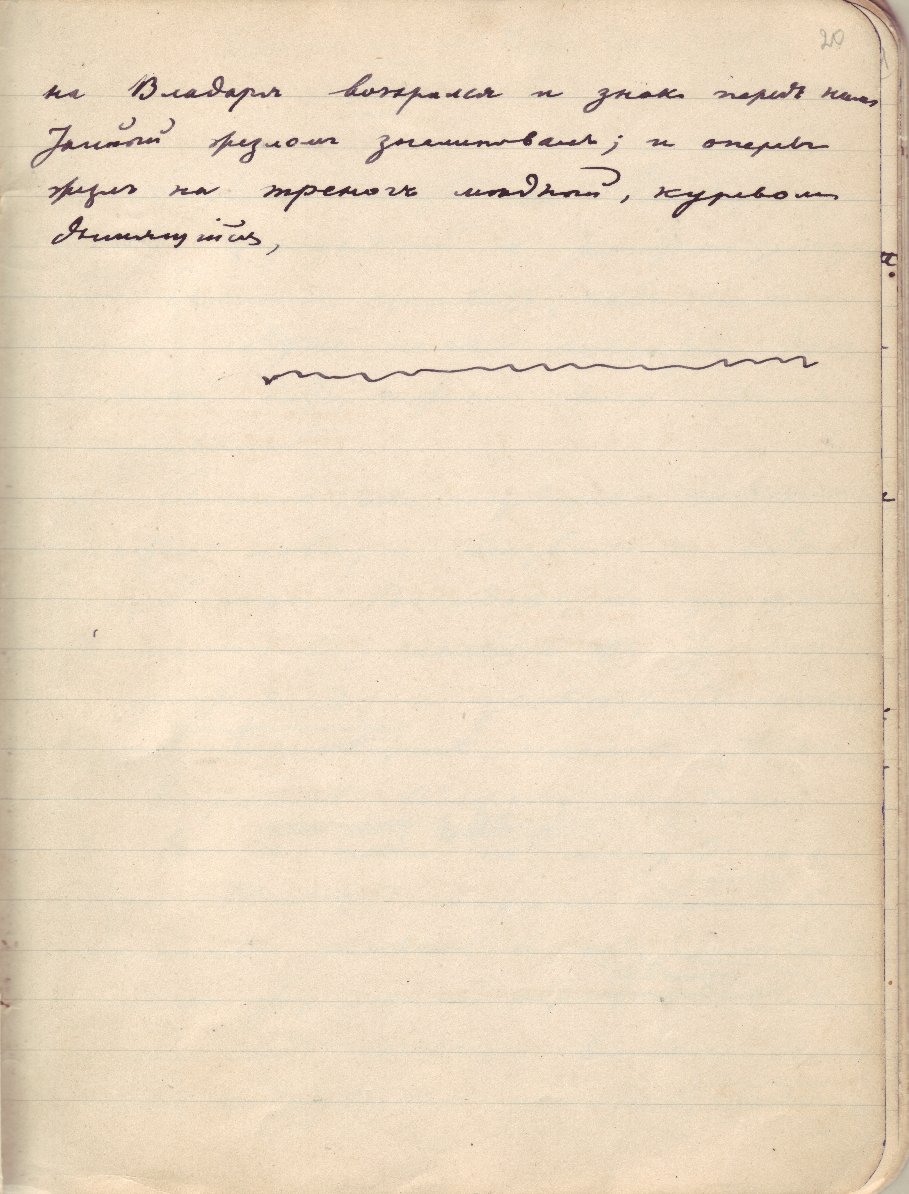 20
на Владаря воззрился и знак передъ нимъ
Тайный жезломъ знаменовалъ; и оперевъ
жезлъ на треногъ мѣдный, куревомъ
дымящійся,